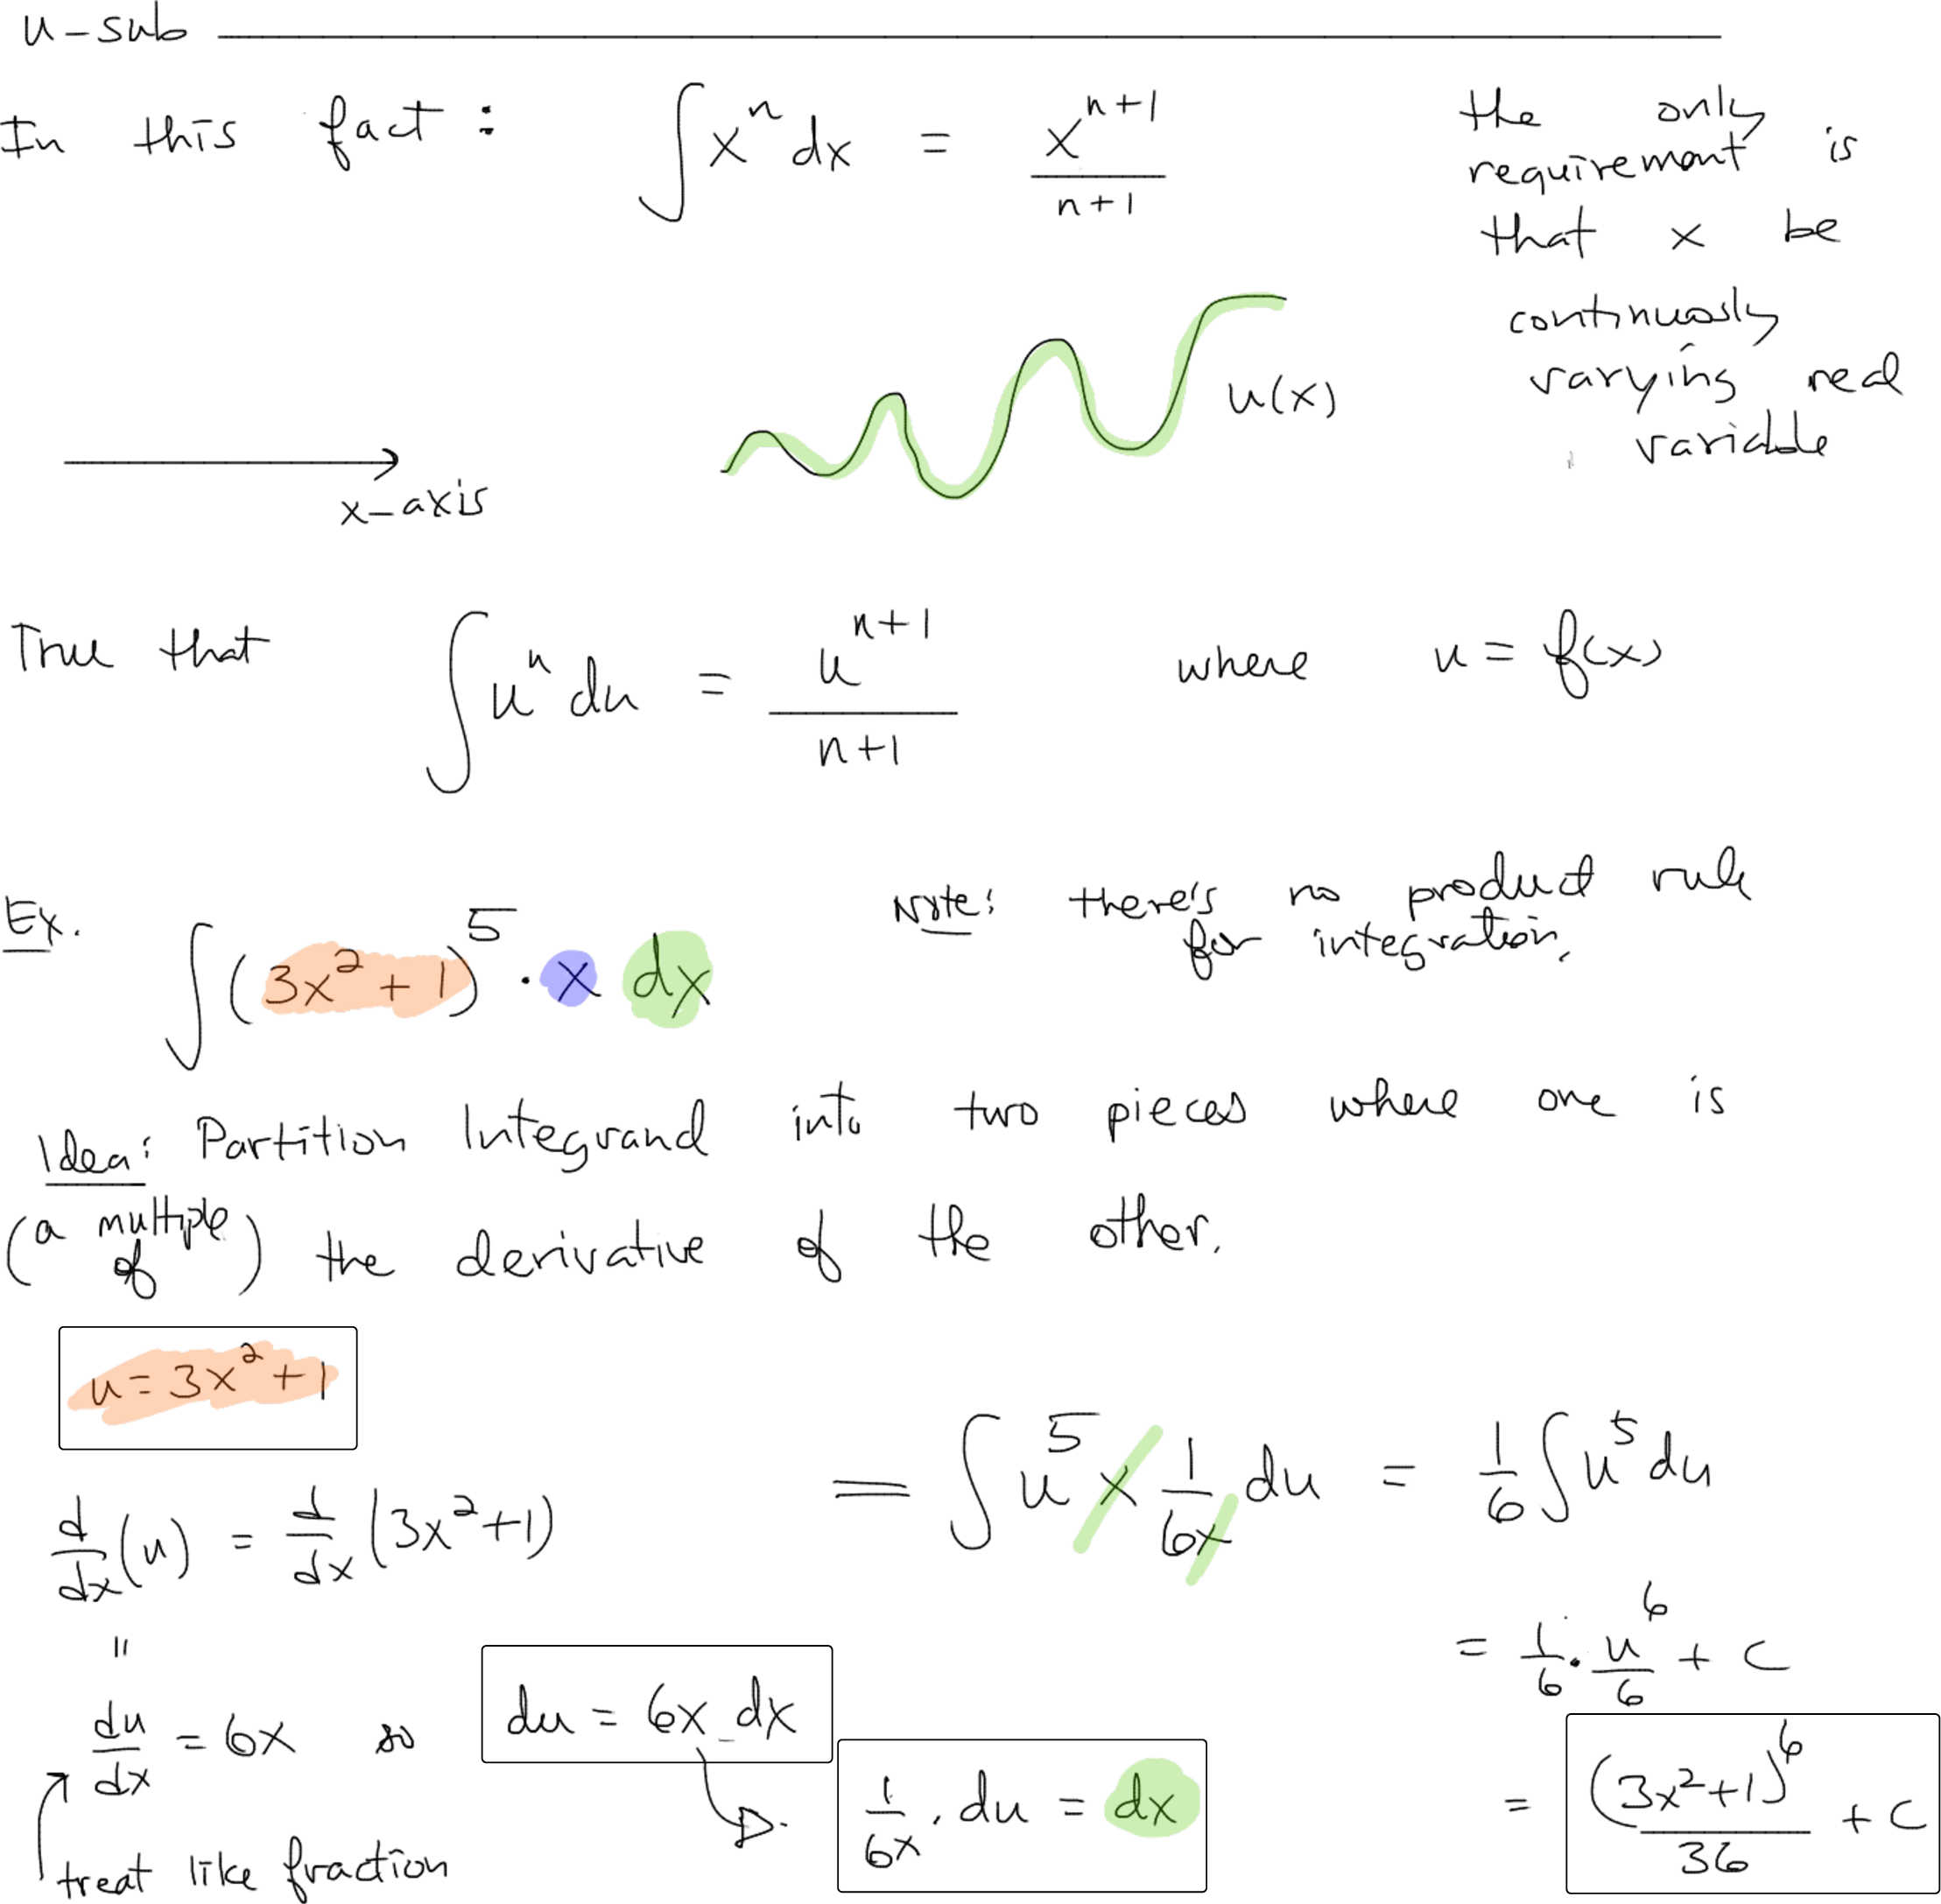 u-sub
In this fact: ∫ x^n dx = x^(n+1)/(n+1)
the only
requirement is
that x be
continuously
varying real
variable
u(x)
x-axis
True that ∫ u^n du = u^(n+1)/(n+1) where u = f(x)
Ex. ∫ (3x^2 + 1)^5 · x dx
Note: there's no product rule
for integration.
Idea: Partition Integrand into two pieces where one is
(a multiple of) the derivative of the other.
u = 3x^2 + 1
d/dx (u) = d/dx (3x^2+1)
=
du/dx = 6x so
du = 6x dx
1/6x · du = dx
treat like fraction
= ∫ u^5 x 1/6x du = 1/6 ∫ u^5 du
= 1/6 · u^6/6 + C
= (3x^2+1)^6/36 + C